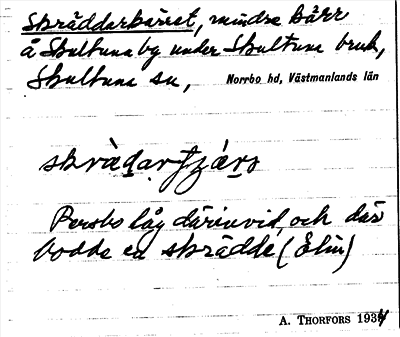 Skräddarkärret, mindre kärr
å Skultuna by under Skultuna bruk,
Skultuna sn, Norrbo hd, Västmanlands län
Persbo låg därinvid, och där
bodde en skrädde
A. THORFORS 1934